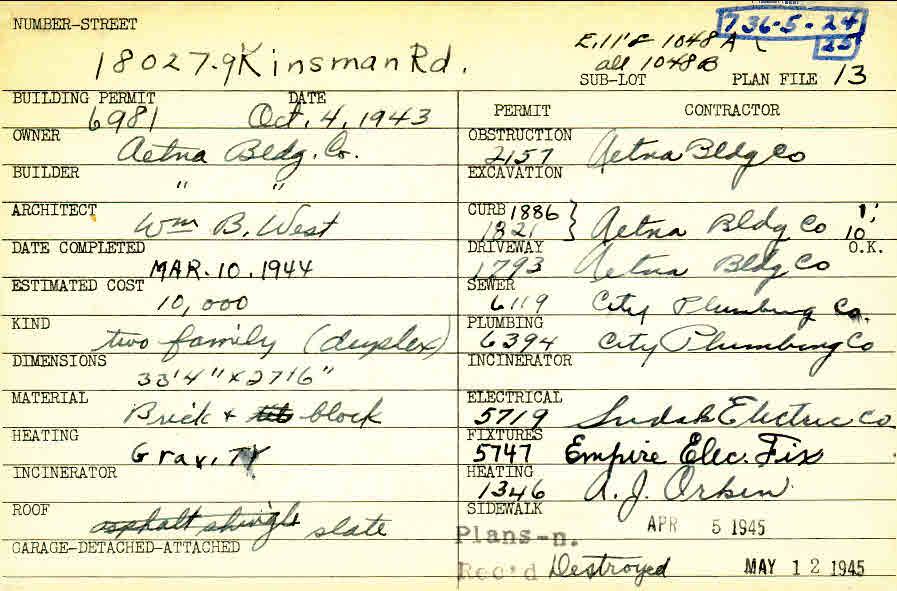 NUMBER-STREET
18027-9 Kinsman Rd.
E.11' of 1048A
all 1048B
736-5-24
25
SUB-LOT PLAN FILE 13
BUILDING PERMIT DATE
6981 Oct. 4, 1943
OWNER
Aetna Bldg. Co.
BUILDER
" "
ARCHITECT
Wm B. West
DATE COMPLETED
MAR. 10. 1944
ESTIMATED COST
10,000
KIND
two family (duplex)
DIMENSIONS
33'4" x 27'6"
MATERIAL
Brick + tile block
HEATING
Gravity
INCINERATOR
ROOF
asphalt shingle slate
GARAGE-DETACHED-ATTACHED
PERMIT CONTRACTOR
OBSTRUCTION
2157 Aetna Bldg Co
EXCAVATION
CURB 1886
1821 } Aetna Bldg Co 1'
10'
O.K.
DRIVEWAY
1793 Aetna Bldg Co
SEWER
6119 City Plumbing Co.
PLUMBING
6394 City Plumbing Co
INCINERATOR
ELECTRICAL
5719 Sudak Electric Co
FIXTURES
5747 Empire Elec. Fix
HEATING
1346 A. J. Orkin
SIDEWALK
APR 5 1945
Plans-n.
Rec'd Destroyed MAY 12 1945